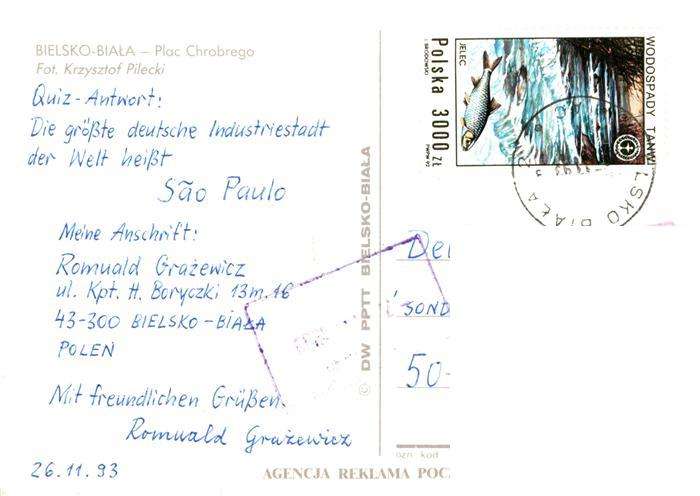 BIELSKO-BIAŁA – Plac Chrobrego
Fot. Krzysztof Pilecki
Quiz-Antwort:
Die größte deutsche Industriestadt
der Welt heißt
São Paulo
Meine Anschrift:
Romuald Grażewicz
ul. Kpt. H. Boryczki 13m.16
43-300 BIELSKO-BIAŁA
POLEN
Mit freundlichen Grüßen.
Romuald Grażewicz
26.11.93
© DW PPTT BIELSKO-BIAŁA
Polska 3000 zł
JELEC
WODOSPADY TANWI
PWPW 92
LSKO BIAŁA
De
SOND
50-
ozn. kod
AGENCJA REKLAMA POC